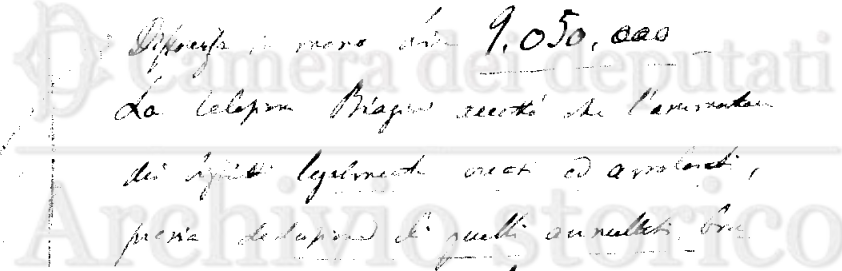 Differenza in meno Lire 9,050,000
La Relazione Biagini accettò che l'ammontare
dei biglietti legalmente creati ed annullati,
previa deduzione di quelli annullati
Camera dei deputati
Archivio storico